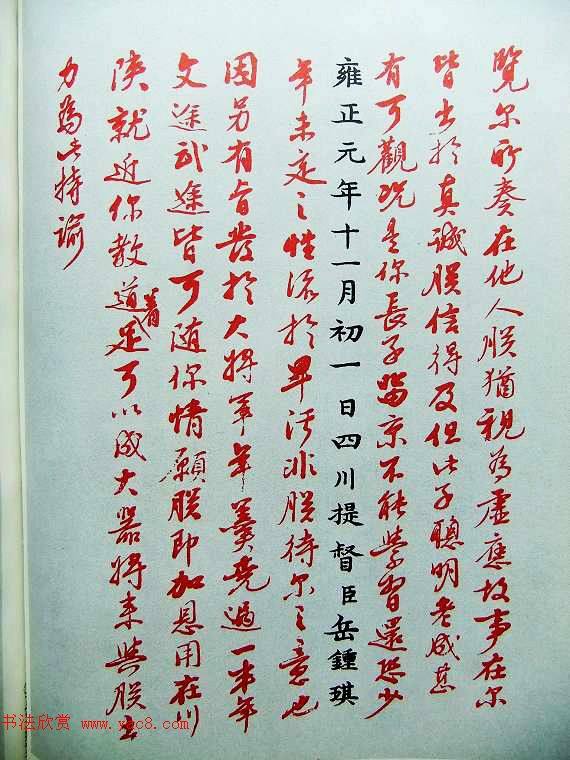 覽尔所奏在他人朕猶視為虛應故事在尔
皆出於真誠朕信得及但此子聰明老成甚
有可觀況是你長子留京不能學習還恐少
雍正元年十一月初一日四川提督臣岳鍾琪
年未定之性流於卑污非朕待尔之意也
因另有旨發於大將軍年羹堯過一半年
文途武途皆可随你情願朕即加恩用在川
陝就近你教道着足可以成大器將来與朕出
力為此特諭
书法欣赏 www.yac8.com